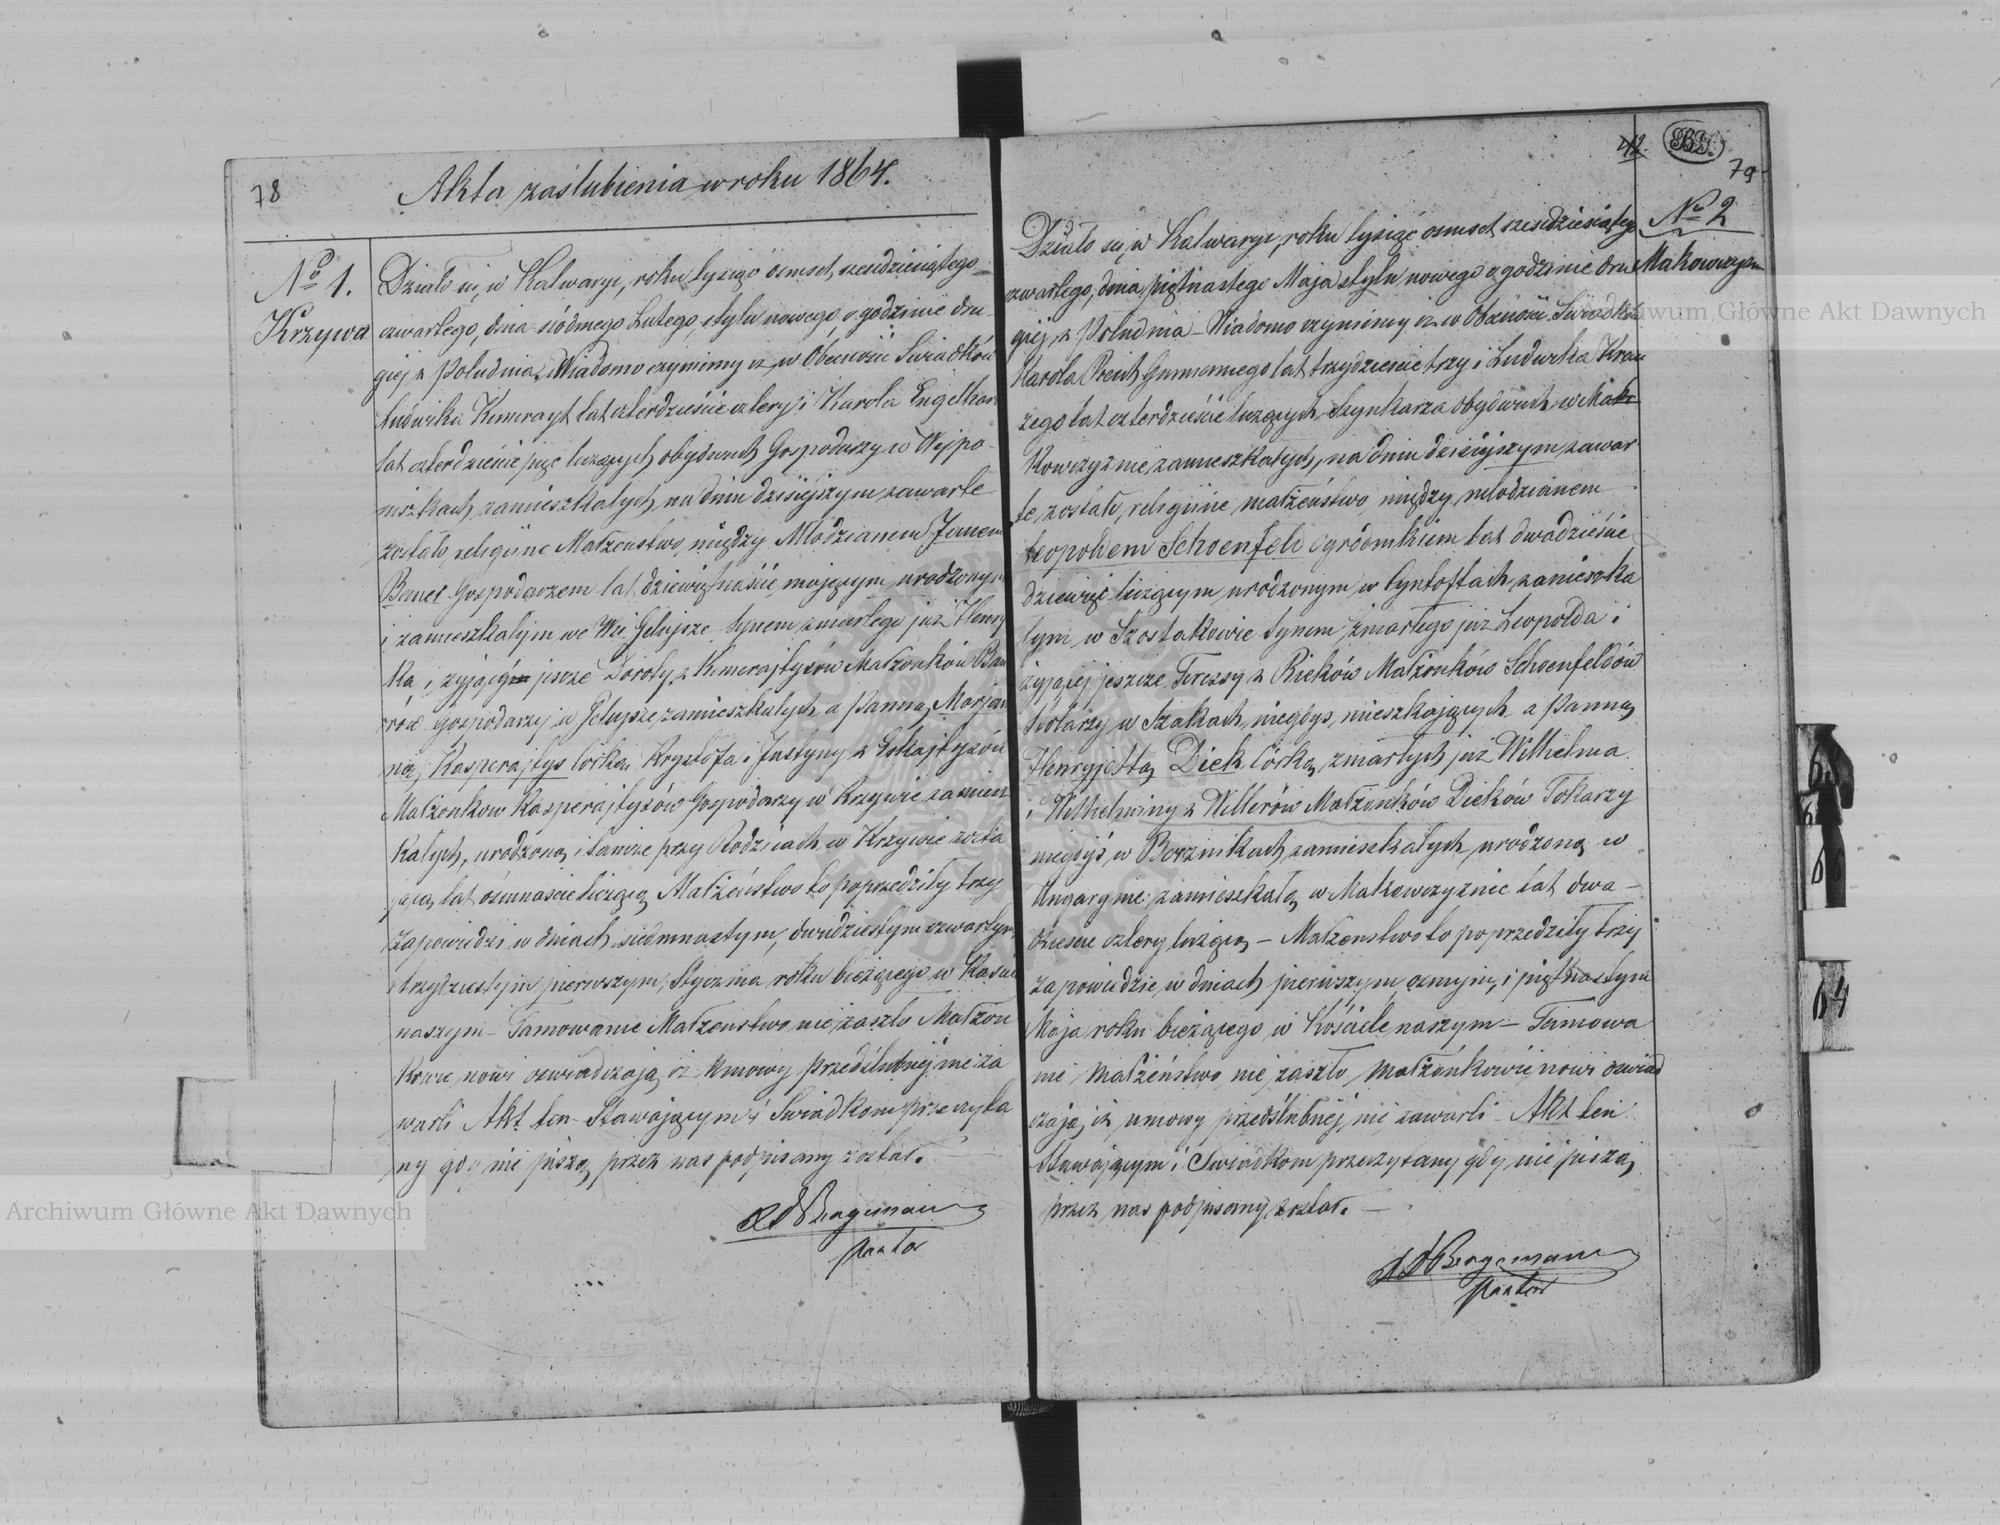 78
Akta zaślubienia w roku 1864.
No 1.
Krzywa
Działo się, w Kalwaryi, roku tysiąc ośmset sześdziesiątego
czwartego, dnia siódmego Lutego, stylu nowego, o godzinie dru
giej z Południa. Wiadomo czynimy iż w Obecności Swiadków
Ludwika Kimrayt lat czterdzieście cztery i Karola Engelhar
lat czterdzieście pięć liczących obydwuch Gospodarzy w Wejpo
niszkach zamieszkałych na dniu dzisiejszym zawarte
zostało religijne Małżeństwo, między Młodzianem Janem
Bauer Gospodarzem lat dziewiętnaście mającym, urodzonym
i zamieszkałym we Wsi Gelujsze Synem zmarłego już Henry
ka i żyjącej jeszcze Doroty z Kimrajtysów Małżonków Bau
rów Gospodarzy w Gelujsze zamieszkałych a Panną Marjan
ną Kasperajtys córką Krysztofa i Justyny z
Małżonkow Kasperajtysów Gospodarzy w Krzywie zamiesz
kałych, urodzoną i tamże przy Rodzicach w Krzywie zosta
jącą lat ośmnaście liczącą Małżeństwo to poprzedziły trzy
zapowiedzi w dniach siedmnastym, dwudziestym czwartym
i trzydziestym pierwszym, Stycznia roku bieżącego w
naszym – Tamowanie Małżeństwo nie zaszło Małżon
kowie nowi oswiadczają iż Umowy przedślubnej nie za
warli Akt ten Stawającym i Swiadkom przeczyta
ny gdy nie piszą przez nas podpisany został.
Bergemann
Pastor
79
No 2
Makowczyzn
Działo się, w Kalwaryi, roku tysiąc ośmset sześdziesiątego
czwartego, dnia piętnastego Maja stylu nowego o godzinie dru
giej z Południa – Wiadomo czynimy iż w Obecności Swiadków
Karola Reich lat trzydzieście trzy i Ludwika Krau
zego lat czterdzieście liczących Szynkarza obydwuch w Mako
kowczyznie zamieszkałych, na dniu dzisiejszym zawar
te zostało, religijne małżeństwo, między młodzianem
Leopoldem Schoenfeld Ogródnikiem lat dwadzieście
dziewięć liczącym, urodzonym w zamieszka
łym w Szostakowie synem zmarłego już Leopolda i
żyjącej jeszcze Teressy z Rieków Małżonków Schoenfeldów
Stolarzy w Szakach niegdys mieszkających a Panną
Henryjettą Dick Córką zmarłych już Wilhelma
i Wilhelminy z Willerów Małżonków Dicków Tokarzy
niegdyś w Borznikach zamieszkałych urodzoną w
Ungarynie zamieszkałą w Makowczyznie lat dwa –
dziescie cztery liczącą – Małżenstwo to poprzedziły trzy
zapowiedzie w dniach pierwszym osmym i piętnastym
Maja roku bieżącego w Kościele naszym – Tamowa
nie Małżeństwo nie zaszło, Małżonkowie nowi oswiad
czają iż umowy przedślubnej nie zawarli – Akt ten
Stawającym i Swiadkom przeczytany gdy nie piszą
przez nas podpisany został. –
Bergemann
Pastor
64
Archiwum Główne Akt Dawnych
Archiwum Główne Akt Dawnych